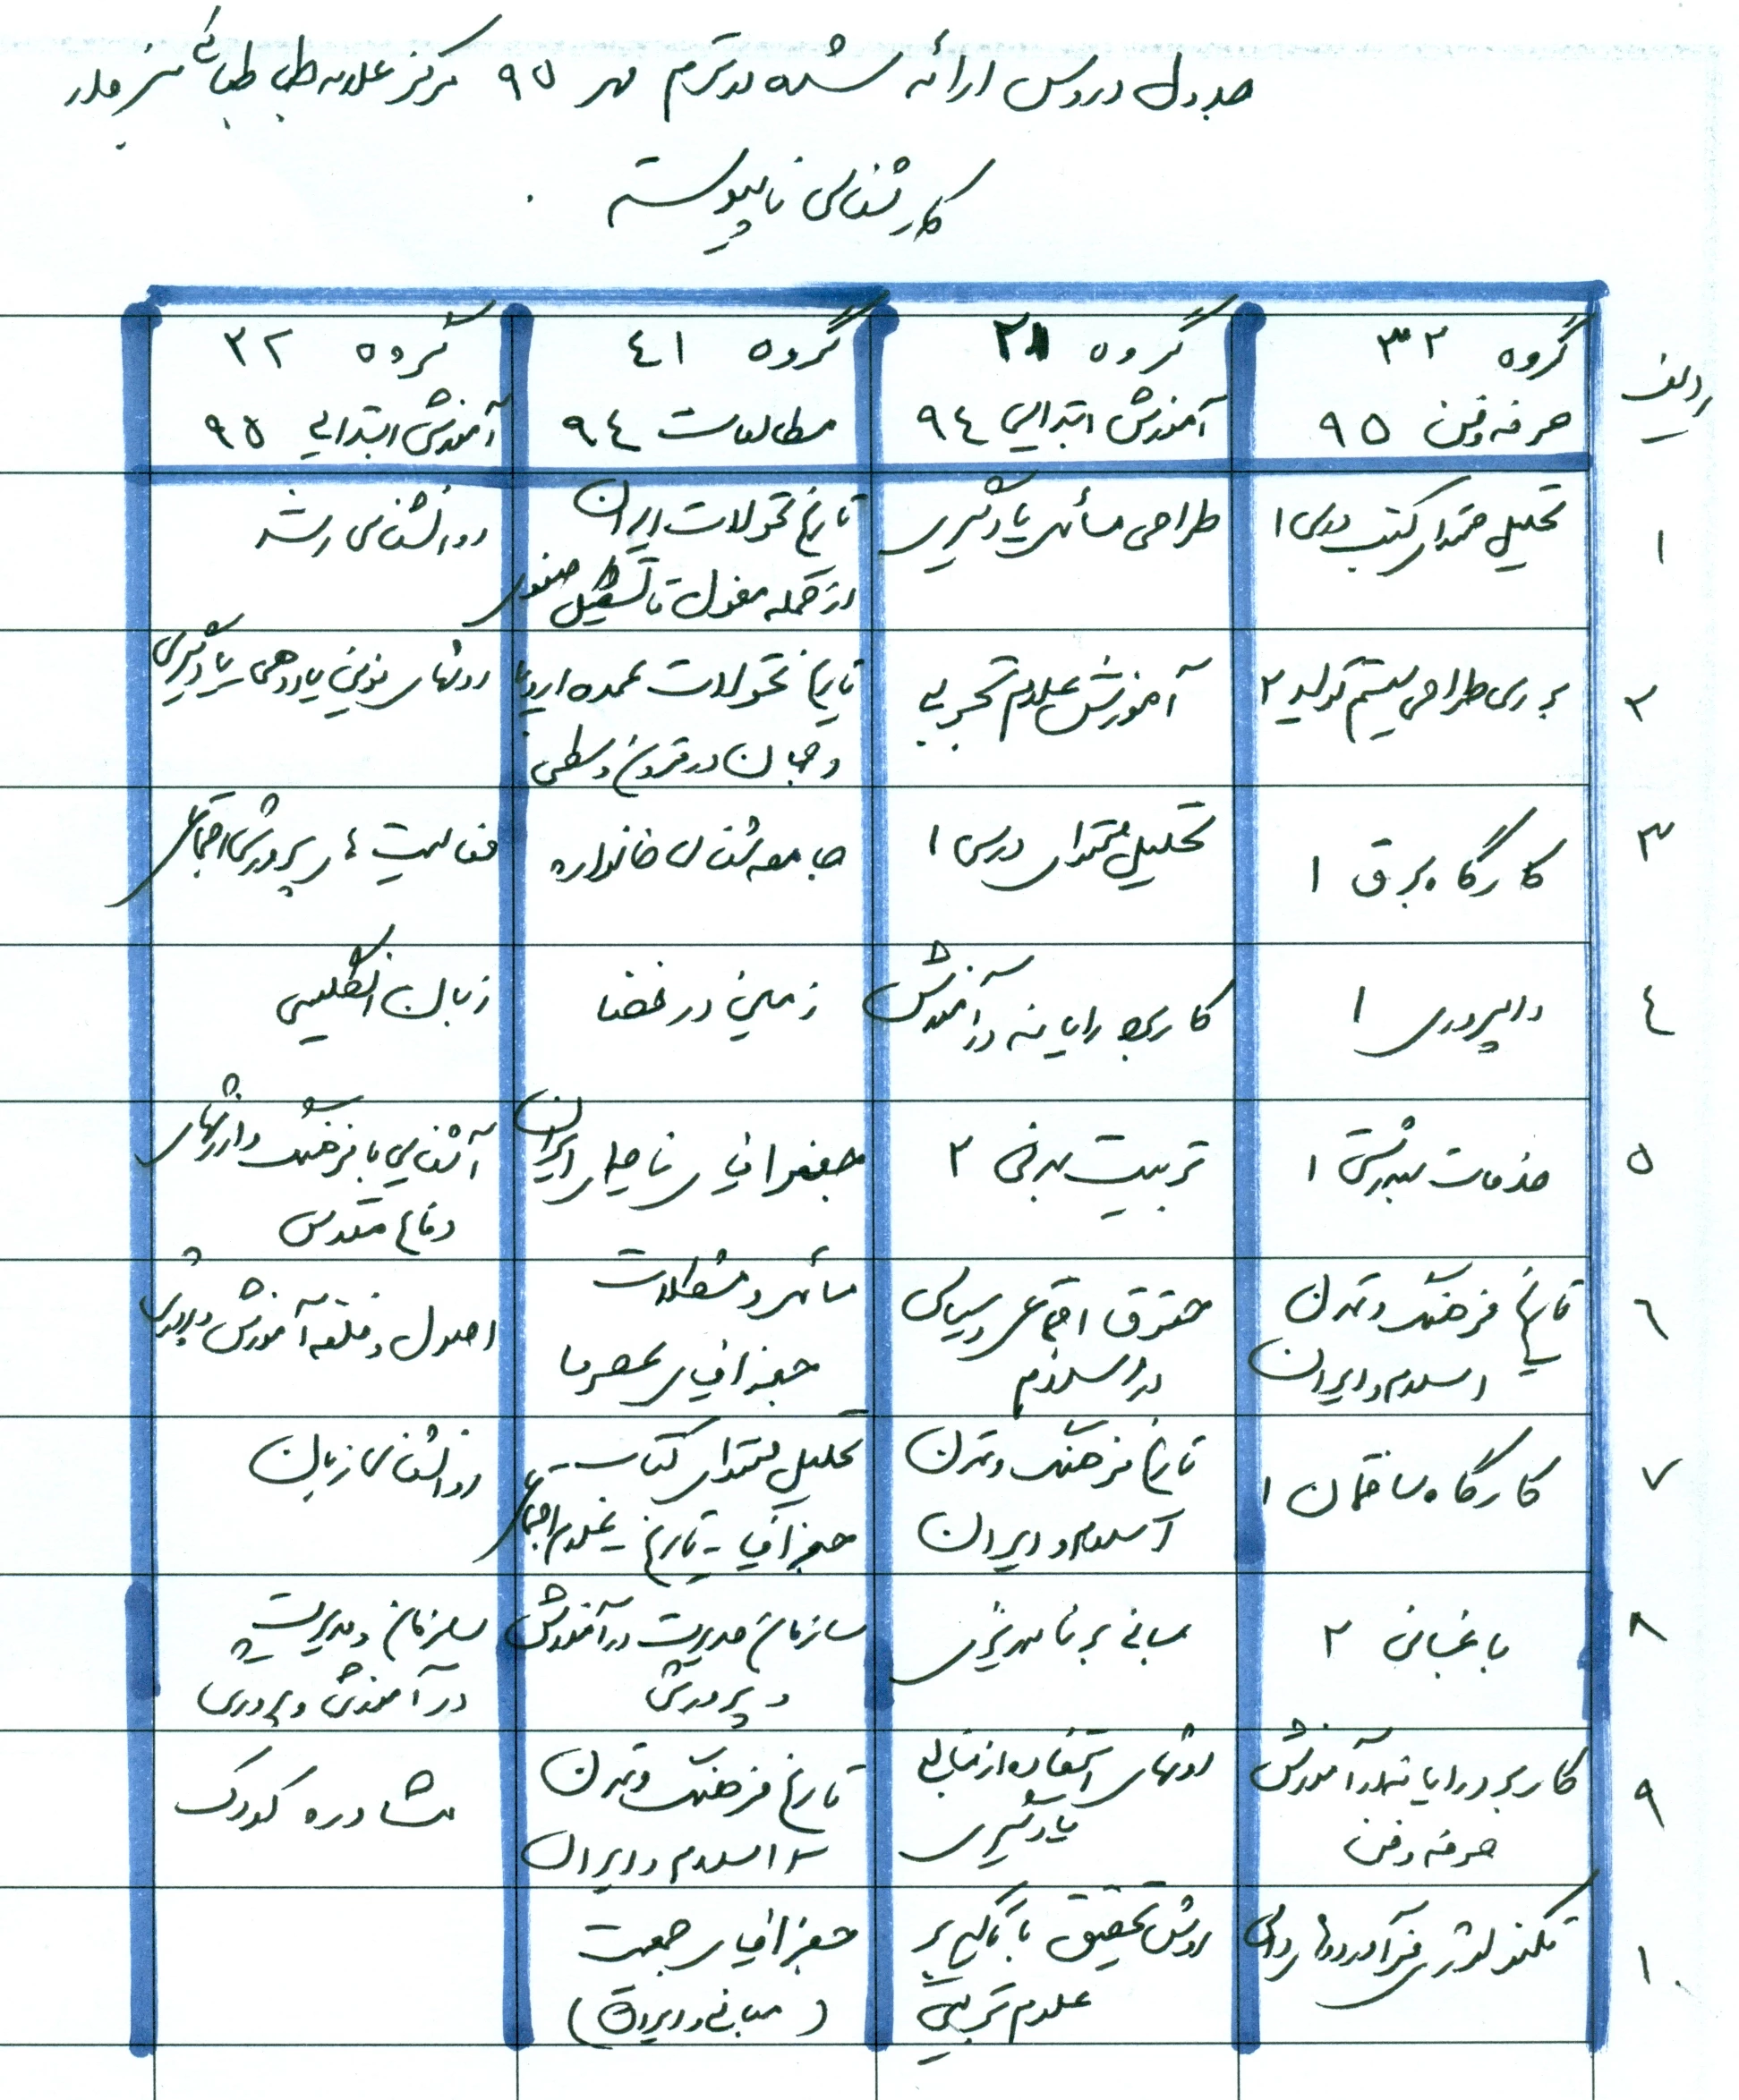 جدول دروس ارائه شده در ترم مهر ۹۵ مرکز علامه طباطبائی
کارشناسی ناپیوسته
ردیف
گروه ۳۲
حرفه و فن ۹۵
گروه ۲۱
آموزش ابتدایی ۹٤
گروه ٤۱
مطالعات ۹٤
گروه ۲۲
آموزش ابتدایی ۹۵
۱
تحلیل محتوای کتب درسی ۱
طراحی مسائل یادگیری
تاریخ تحولات ایران
از حمله مغول تا تشکیل صفوی
روانشناسی رشد
۲
بررسی طراحی سیستم تولید ۲
آموزش علوم تجربی
تاریخ تحولات عمده اروپا
و جهان در قرون وسطی
روشهای نوین یاددهی یادگیری
۳
کارگاه برق ۱
تحلیل محتوای درسی ۱
جامعه شناسی خانواده
فعالیت های پرورشی اجتماعی
٤
دامپروری ۱
کاربرد رایانه در آموزش
زمین در فضا
زبان انگلیسی
۵
خدمات بهداشتی ۱
تربیت بدنی ۲
جغرافیای ناحیه ای ایران
آشنایی با فرهنگ و ارزشهای
دفاع مقدس
٦
تاریخ فرهنگ و تمدن
اسلام و ایران
حقوق اجتماعی و سیاسی
در اسلام
مسائل و مشکلات
جغرافیای عصر ما
اصول و فلسفه آموزش و پرورش
۷
کارگاه ساختمان ۱
تاریخ فرهنگ و تمدن
اسلام و ایران
تحلیل محتوای کتاب
جغرافیا - تاریخ - علوم اجتماعی
روانشناسی زبان
۸
باغبانی ۲
مبانی برنامه ریزی
سازمان مدیریت در آموزش
و پرورش
سازمان و مدیریت
در آموزش و پرورش
۹
کاربرد رایانه در آموزش
حرفه و فن
روشهای استفاده از منابع
یادگیری
تاریخ فرهنگ و تمدن
اسلام و ایران
مشاوره کودک
۱۰
تکنولوژی فرآورده های دامی
روش تحقیق با تاکید بر
علوم تربیتی
جغرافیای جمعیت
(مبانی و ایران)